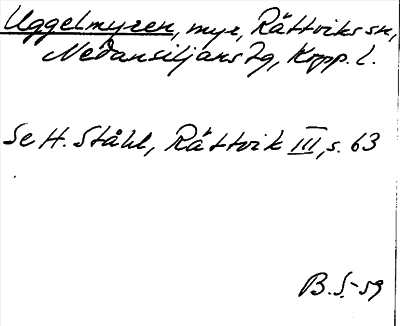 Uggelmyren, myr, Rättviks sn,
Nedansiljans tg, Kopp. l.
Se H. Ståhl, Rättvik III, s. 63
B.S.-59